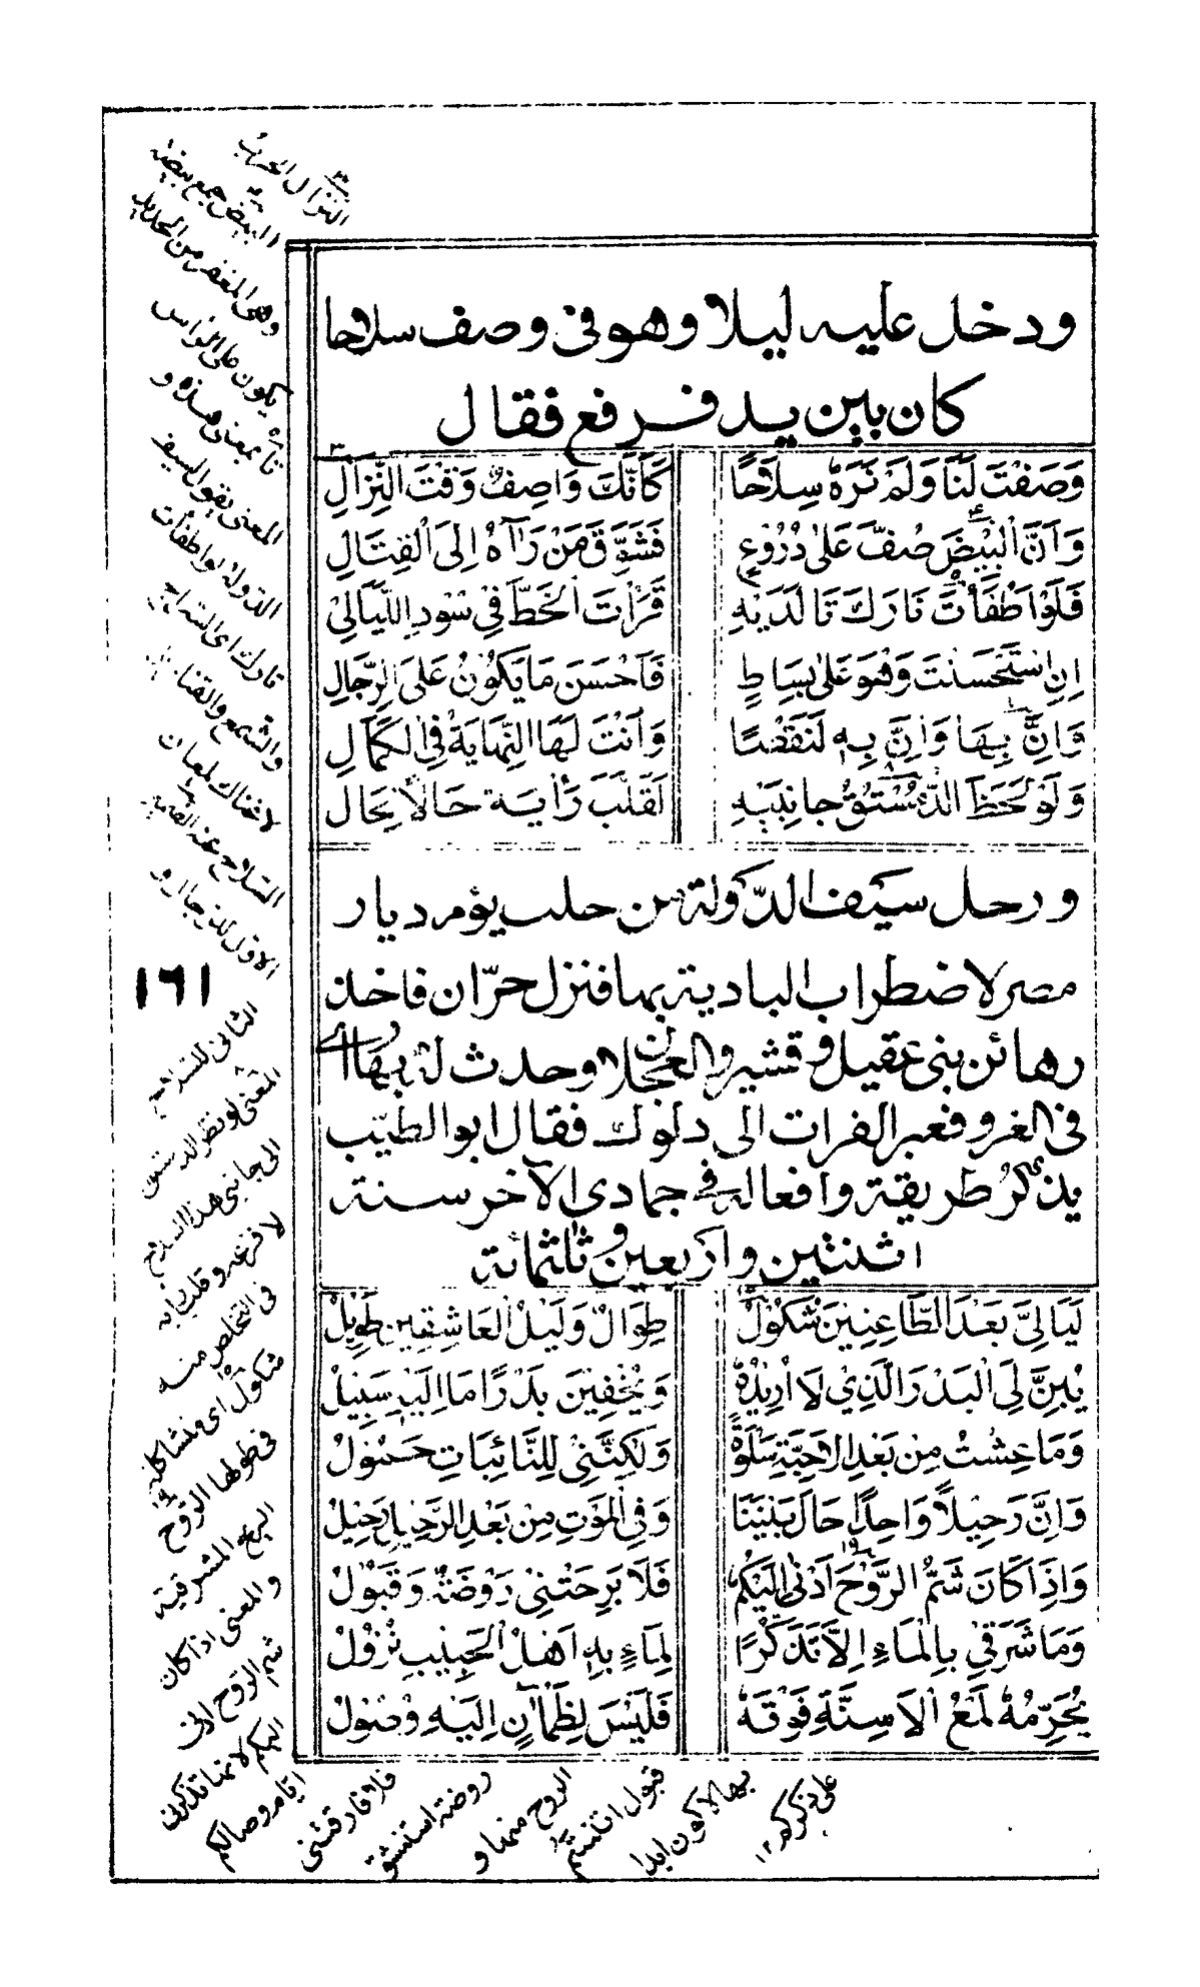 ودخل عليه ليلا وهو في وصف سلاحا
كان بين يده فرفع فقال
وَصَفْتَ لَنَا وَلَمْ نَرَهُ سِلَاحًا كَأَنَّكَ وَاصِفٌ وَقْتَ النِّزَالِ
وَأَنَّ الْبَيْضَ صُفَّ عَلَى دُرُوعٍ فَشَوَّقَ مَنْ رَآهُ إِلَى الْقِتَالِ
فَلَوْ أَطْفَأْتَ نَارَكَ تَا لَدَيْهِ قَرَأْتَ الْخَطَّ فِي سُودِ اللَّيَالِي
إِنِ اسْتَحْسَنْتَ وَهْوَ عَلَى بِسَاطٍ فَأَحْسَنُ مَا يَكُونُ عَلَى الرِّجَالِ
وَإِنَّ بِهَا وَإِنَّ بِهِ لَنَقْصًا وَأَنْتَ لَهَا النِّهَايَةُ فِي الْكَمَالِ
وَلَوْ لَحَظَ الدُّمُسْتُقُ جَانِبَيْهِ لَقَلَّبَ رَأْيَهُ حَالًا بِحَالِ
ورحل سيف الدولة من حلب يؤم ديار
مضر لاضطراب البادية بها فنزل حرّان فاخذ
رهائن بني عقيل و قشير والعجلان وحدث له بها رأي
في الغزو فعبر الفرات الى دلوك فقال ابو الطيّب
يذكر طريقه وافعاله في جمادى الآخر سنة
اثنتين واربعين وثلثمائة
لَيَالِيَّ بَعْدَ الظَّاعِنِينَ شُكُولُ طِوَالٌ وَلَيْلُ الْعَاشِقِينَ طَوِيلُ
يُبِنَّ لِيَ الْبَدْرَ الَّذِي لَا أُرِيدُهُ وَيُخْفِينَ بَدْرًا مَا إِلَيْهِ سَبِيلُ
وَمَا عِشْتُ مِنْ بَعْدِ الْأَحِبَّةِ سَلْوَةً وَلَكِنَّنِي لِلنَّائِبَاتِ حَمُولُ
وَإِنَّ رَحِيلًا وَاحِدًا حَالَ بَيْنَنَا وَفِي الْمَوْتِ مِنْ بَعْدِ الرَّحِيلِ رَحِيلُ
وَإِذَا كَانَ شَمُّ الرَّوْحِ أَدْنَى إِلَيْكُمُ فَلَا بَرِحَتْنِي رَوْضَةٌ وَقَبُولُ
وَمَا شَرَقِي بِالْمَاءِ إِلَّا تَذَكُّرًا لِمَاءٍ بِهِ أَهْلُ الْحَبِيبِ نُزُولُ
يُحَرِّمُهُ لَمْعُ الْأَسِنَّةِ فَوْقَهُ فَلَيْسَ لِظَمْآنٍ إِلَيْهِ وُصُولُ
النزال الحرب
البيض جمع بيضة
وهى المغفر من الحديد
يكون على الراس
تا بمعنى هذه و
المعنى يقول لسيف
الدولة لو اطفأت
نارك اى السراج
والشمع
لمعان
السلاح
الاول
١٦١
الثانى
المعنى لو نظر الدمستق
الى جانبى هذا السلاح
لا فزعه وقلب رايه
فى التخلص منه
شكول اى متشاكلة
فى طولها الروح
الريح المشرقية
والمعنى اذا كان
شم الروح ادنى
اليكم لانها تذكرنى
ايام وصالكم
فلا فارقتنى
روضة استنشق
الروح منها و
قبول اتنسم
بها لاكون ابدا
على ذكركم ١٢